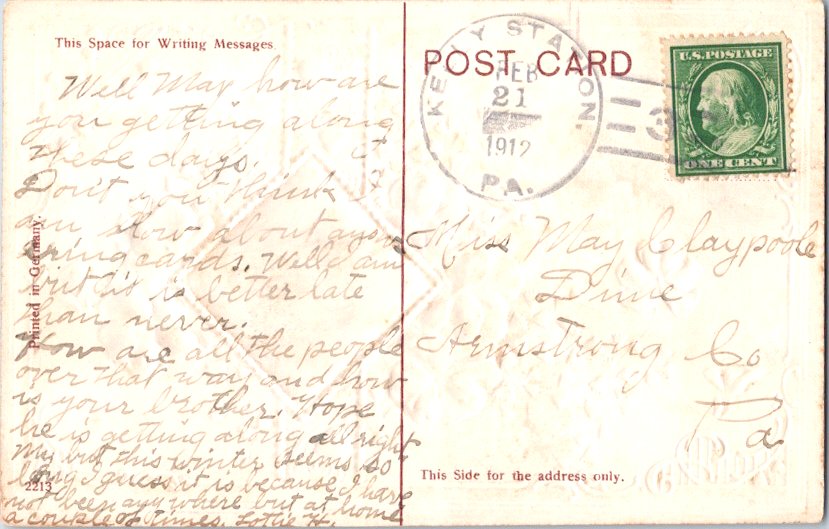 This Space for Writing Messages
Well May how are
you getting along
these days.
Don't you think I
am slow about answ
ering cards. Well I am
but its is better late
than never.
How are all the people
over that way and how
is your brother. Hope
he is getting along all right
My but this winter seems so
long I guess it is because I have
not been any where but at home
a couple of times. Lottie H.
Printed in Germany.
2213
POST CARD
KELLY STATION,
FEB
21
1912
PA.
U.S. POSTAGE
ONE CENT
Miss May Claypoole
Dime
Armstrong Co
Pa
This Side for the address only.